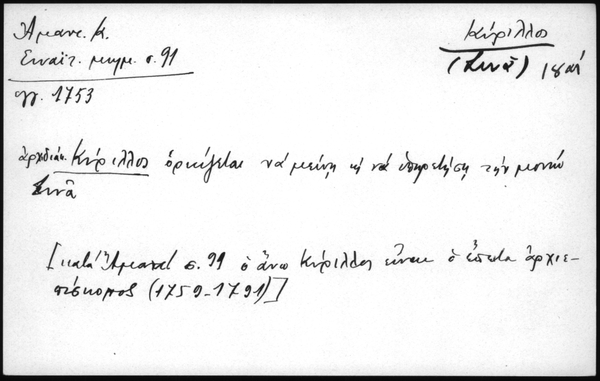 Ἄμαντ. Κ.
Σιναϊτ. μνημ. σ. 91
Κύριλλος
(Σινᾶ) 18 αἰ
ἔγγ. 1753
ἀρχιδιάκ. Κύριλλος ὁρκίζεται νά μείνῃ κ νά ὑπηρετήσῃ τήν μονήν
Σινᾶ
[κατά Ἄμαντ σ. 91 ὁ ἄνω Κύριλλος εἶναι ὁ ἔπειτα ἀρχιε-
πίσκοπος (1759-1791)]